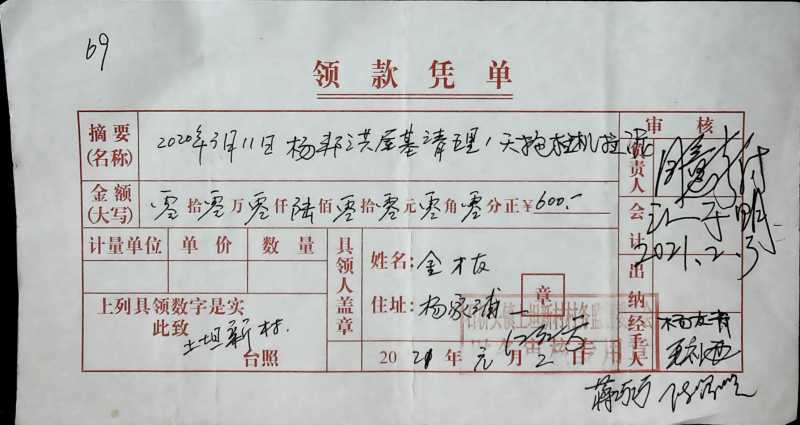 69
领款凭单
摘要
(名称)
2020年3月11日杨邦洪屋基清理1天挖挂机拉泥
审核
负责人
同意支付
金额
(大写)
零拾零万零仟陆佰零拾零元零角零分正¥600.-
会计
2021.2.3
计量单位 单价 数量
具领人盖章
姓名:金才友
住址:杨家浦
章
出纳
上列具领数字是实
此致
土坦新村.
台照
2021年元月2日
经手人
杨友青
蒋万万